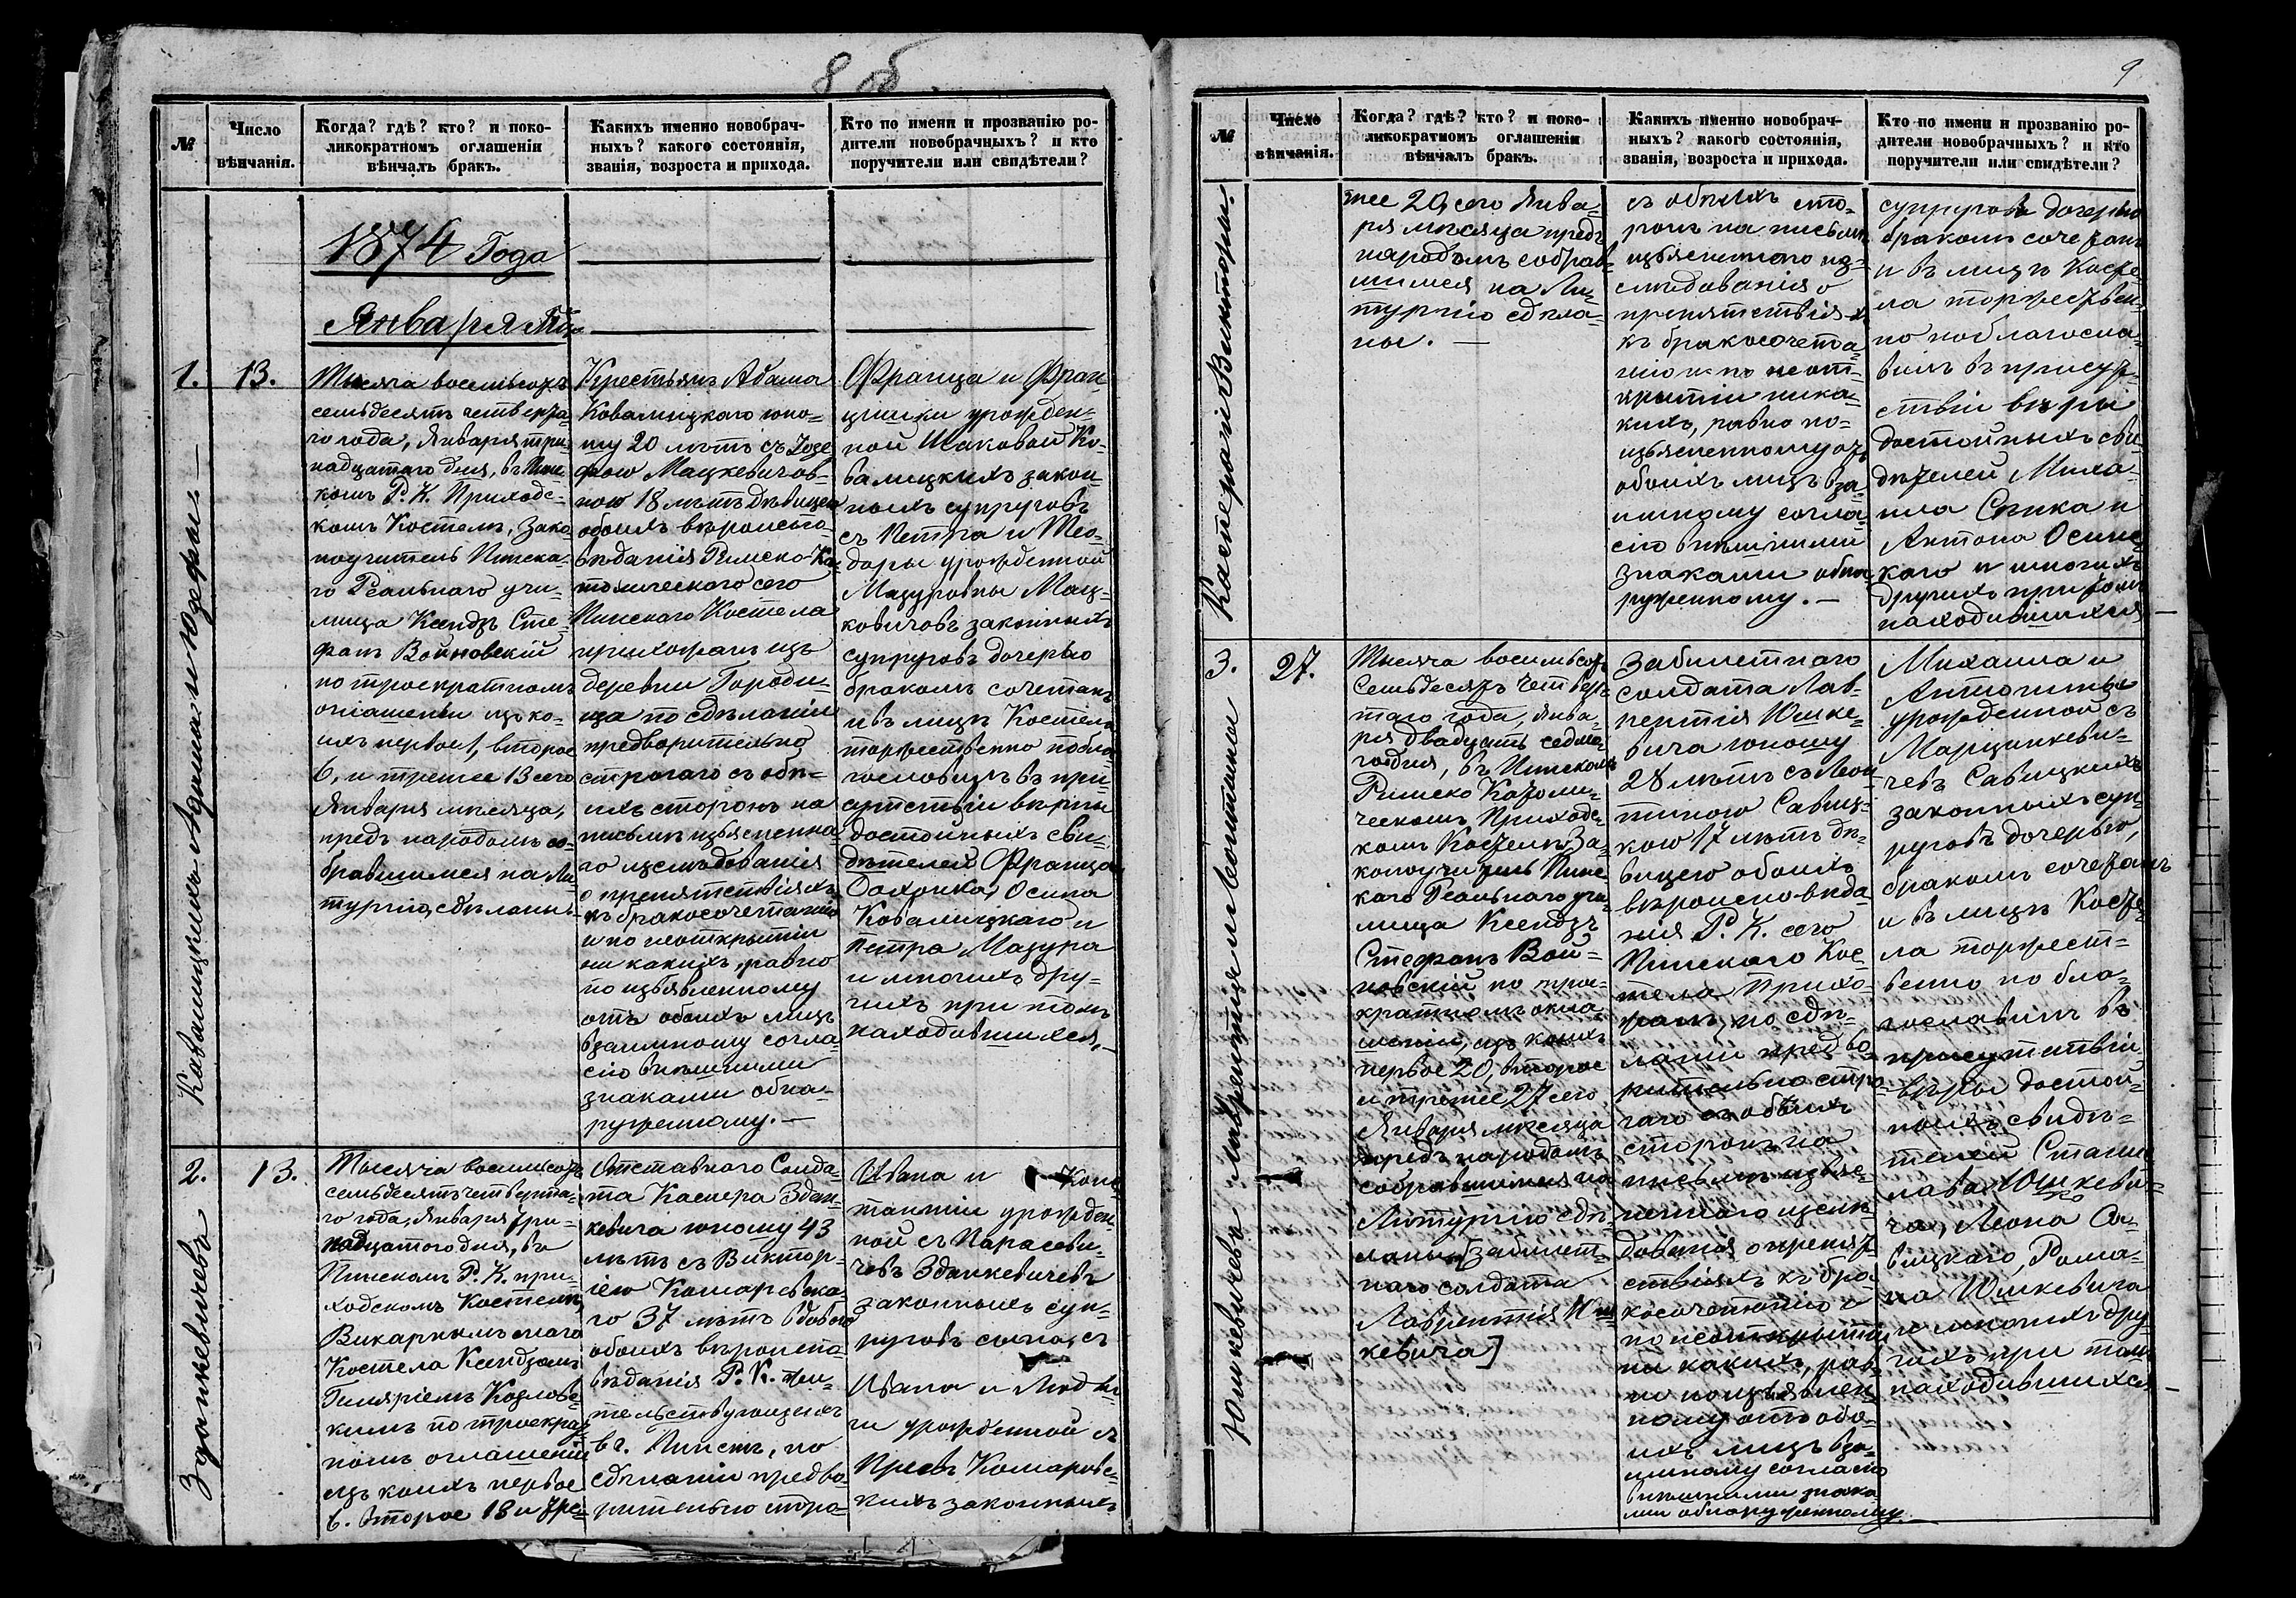 8 об.
№
Число
вѣнчанія.
Когда? гдѣ? кто? и поко-
ликократномъ оглашеніи
вѣнчалъ бракъ.
Какихъ именно новобрач-
ныхъ? какого состоянія,
званія, возроста и прихода.
Кто по имени и прозванію ро-
дители новобрачныхъ? и кто
поручители или свидѣтели?
1874 Года
Января Мца
Ковалицкихъ Адама и Юзефы
1.
13.
Тысяча восемьсотъ
семьдесятъ четверта-
го года, Января три-
надцатаго дня, въ Пинс
комъ Р. К. Приходс-
комъ Костелѣ, Зако-
ноучитель Пинска-
го Реальнаго учи-
лища Ксендзъ Сте-
фанъ Войновскій
по троекратномъ
оглашеніи изъ ко-
ихъ первое 1, второе
6, и третее 13 сего
Января мѣсяца,
предъ народомъ со-
бравшимся на Ли-
тургію, сдѣланы.
Крестьянъ Адама
Ковалицкаго юно-
шу 20 лѣтъ съ Юзе
фою Мацкевичов-
ною 18 лѣтъ дѣвицею
обоихъ вѣроиспо-
вѣданія Римско-Ка-
толическаго сего
Пинскаго Костела
прихожанъ изъ
деревни Городи-
ща по сдѣланіи
предворительно
строгаго съ обѣ-
ихъ сторонъ на
письмѣ изъясненна-
го изслѣдованія
о препятствіяхъ
къ бракосочетанію
и по неоткрытіи
ни какихъ, равно
по изъявленному
отъ обоихъ лицъ
взаимному согла-
сію внѣшними
знаками обна-
руженному. —
Франца и Фран
цишки урожден-
ной Шаковой Ко-
валицкихъ закон-
ныхъ супруговъ
съ Петра и Тео-
доры урожденной
Мазуровны Мац-
ковичовъ законныхъ
супруговъ дочерью
бракомъ сочеталъ
и въ лицѣ Костела
торжественно побла-
гословилъ въ при-
сутствіи вѣры
достойныхъ сви-
дѣтелей Франца
Осипа
Ковалицкаго и
Петра Мазура
и многихъ дру-
гихъ при томъ
находившихся.
Зданкевичева
2.
13.
Тысяча восемьсотъ
семьдесятъ четверта-
го года, Января три-
надцатого дня, въ
Пинскомъ Р. К. при-
ходскомъ Костелѣ,
Викарнымъ сего
Костела Ксендзомъ
Гиляріемъ Козловс-
кимъ по троекрат
номъ оглашеніи
изъ коихъ первое
6. второе 13 и тре-
Отставного Солда-
та Каспера Здан-
кевича юношу 43
лѣтъ съ Виктор-
іею Комаревска-
го 37 лѣтъ вдовою
обоихъ вѣроиспо-
вѣданія Р. К. жи-
тельствующихъ
въ г. Пинскѣ, по
сдѣланіи предво-
рительно стро-
Ивана и Конс
танціи урожден-
ной съ Парасеви-
чевъ Зданкевичевъ
законныхъ суп-
руговъ сына, съ
Ивана и Людви-
ги урожденной съ
Комаровс-
кихъ законныхъ
9
№
Число
вѣнчанія.
Когда? гдѣ? кто? и поко-
ликократномъ оглашеніи
вѣнчалъ бракъ.
Какихъ именно новобрач-
ныхъ? какого состоянія,
званія, возроста и прихода.
Кто по имени и прозванію ро-
дители новобрачныхъ? и кто
поручители или свидѣтели?
Каспера и Викторіи.
тее 20, сего Янва-
ря мѣсяца предъ
народомъ собрав-
шимся на Ли-
тургію сдѣла-
ны. —
съ обѣихъ сто-
ронъ на письмѣ
изъясненного из-
слѣдованія о
препятствіяхъ
къ бракосочета-
нію и по неот-
крытіи ника-
кихъ, равно по-
изъясненному отъ
обоихъ лицъ вза-
имному согла-
сію внѣшними
знаками обна-
руженному. —
супруговъ дочерью
бракомъ сочеталъ
и въ лицѣ Косте
ла торжествен-
но поблагосла-
вилъ въ присут-
ствіи вѣры
достойныхъ сви-
дѣтелей Миха-
ила Спика и
Антона Осинс
каго и многихъ
другихъ при томъ
находившихся —
Юшкевичева Лаврентія и Леонтины
3.
27.
Тысяча восемьсотъ
Семьдесятъ четвер-
таго года, Янва-
ря двадцать седма-
го дня, въ Пинскомъ
Римско Католи-
ческомъ Приходс-
комъ Костелѣ За-
коноучитель Пинс
каго Реальнаго учи-
лища Ксендзъ
Стефанъ Вой-
новскій по трое-
кратномъ огла-
шеніи, изъ коихъ
первое 20, второе
и третее 27 сего
Января мѣсяца
предъ народомъ
собравшимся на
Литургію сдѣ-
ланы [забилет-
наго солдата
Лаврентія Юш
кевича]
Забилетнаго
солдата Лав-
рентія Юшке-
вича юношу
28 лѣтъ съ Леон
тиною Савиц-
кою 17 лѣтъ дѣ-
вицею обоихъ
вѣроисповѣда
нія Р. К. сего
Пинскаго Кос-
тела Прихо-
жанъ, по сдѣ-
ланіи предво-
рительно стро-
гаго съ обѣихъ
сторонъ на
письмѣ изъяс-
неннаго изслѣ-
дованія о препят
ствіяхъ къ бра-
косочетанію и
по неоткрытіи
ни какихъ, рав-
но по изъявлен-
ному отъ обо-
ихъ лицъ вза-
имному согласію
внѣшними знака
ми обнаруженному.
Михаила и
Антонины
урожденной съ
Марцинкеви-
чевъ Савицкихъ
законныхъ суп-
руговъ дочерью,
бракомъ сочеталъ
и въ лицѣ Косте-
ла торжест-
венно побла-
гословилъ въ
присутствіи
вѣры достой-
ныхъ свидѣ-
телей Станис
лава Юшкеви-
ча, Леона Са-
вицкаго, Рома-
на Юшкевича
и многихъ дру-
гихъ при томъ
находившихся —